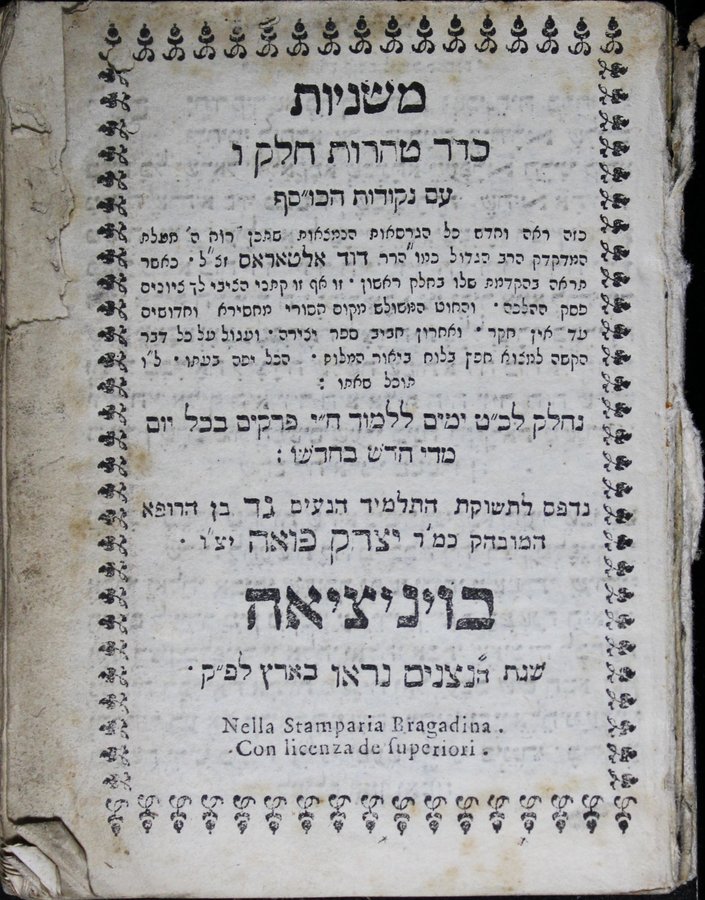 משניות
סדר טהרות חלק ו
עם נקודות הכו"סף
כזה ראה וחדש כל הגרסאות הנמצאות שתכן רוח ה' תעלת
המדקדק הרב הגדול כמו"הרר דוד אלטאראס זצ"ל · כאשר
תראה בהקדמת שלו בחלק ראשון · זו אף זו קתני הציבי לך ציונים
פסק ההלכה · והחוט המשולש מקום הסורי מחסירא וחדושים
עד אין חקר · ואחרון חביב ספר יצירה · ועגול על כל דבר
הקשה למצוא חפץ בלוח ביאור המלות · הכל יפה בעתו · ל"ו
תוכל שאתו :
נחלק לכ"ט ימים ללמוד ח"י פרקים בכל יום
מדי חדש בחדשו :
נדפס לתשוקת התלמיד הנעים גד בן הרופא
המובהק כמ"ר יצחק פואה יצ"ו ·
בויניציאה
שנת הנצנים נראו בארץ לפ"ק ·
Nella Stamparia Bragadina .
Con licenza de superiori .